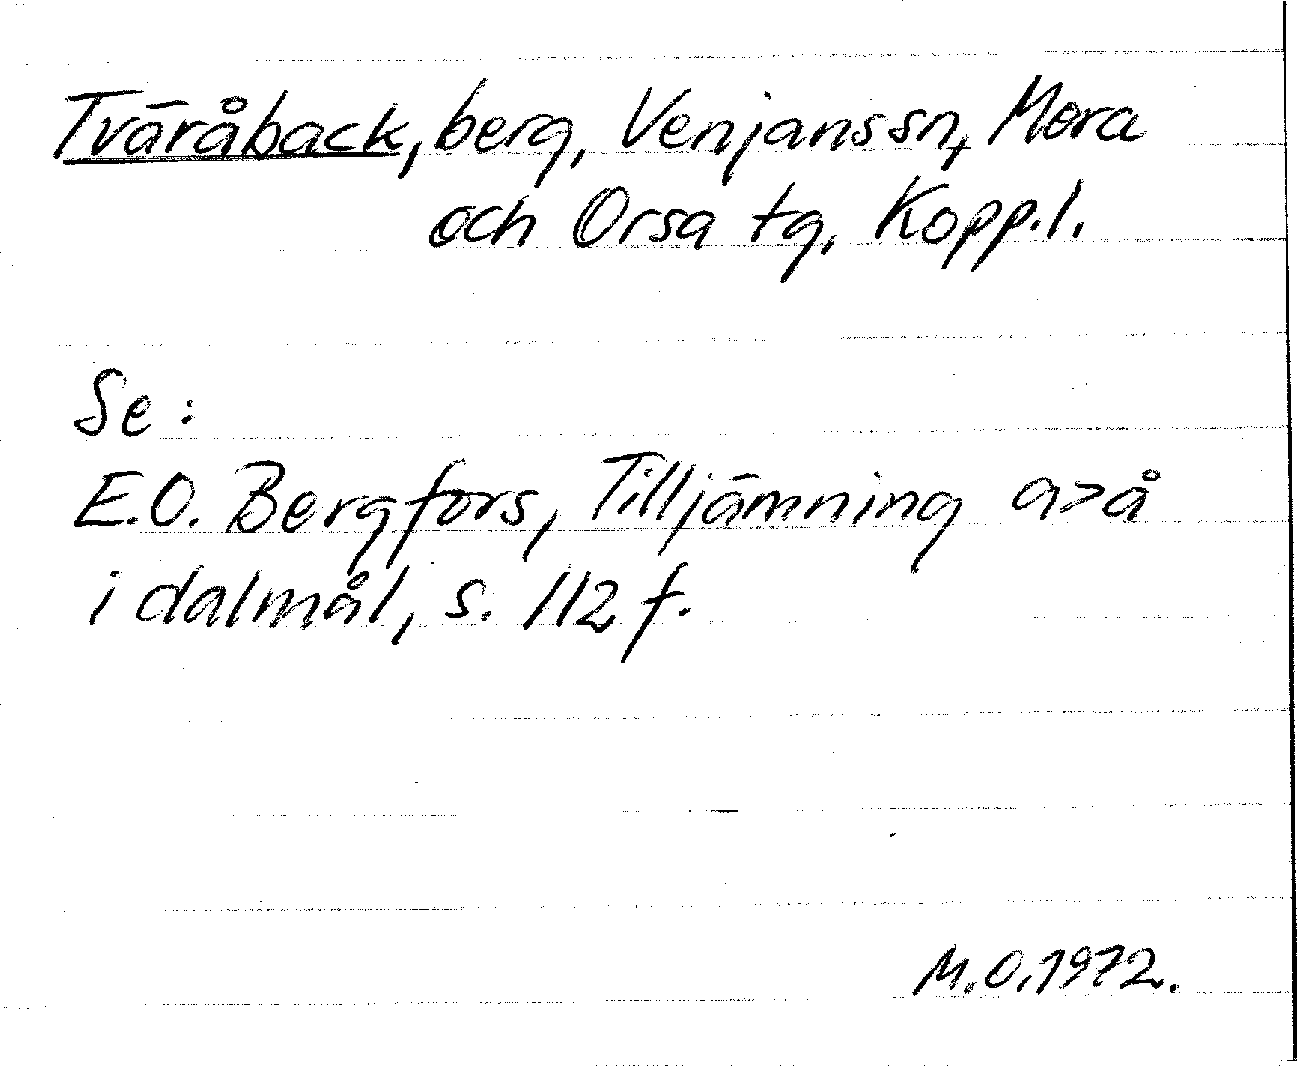 Tväråback, berg, Venjans sn, Mora
och Orsa tg, Kopp.l.
Se:
E.O. Bergfors, Tilljämning a>å
i dalmål, s. 112 f.
M.O. 1972.